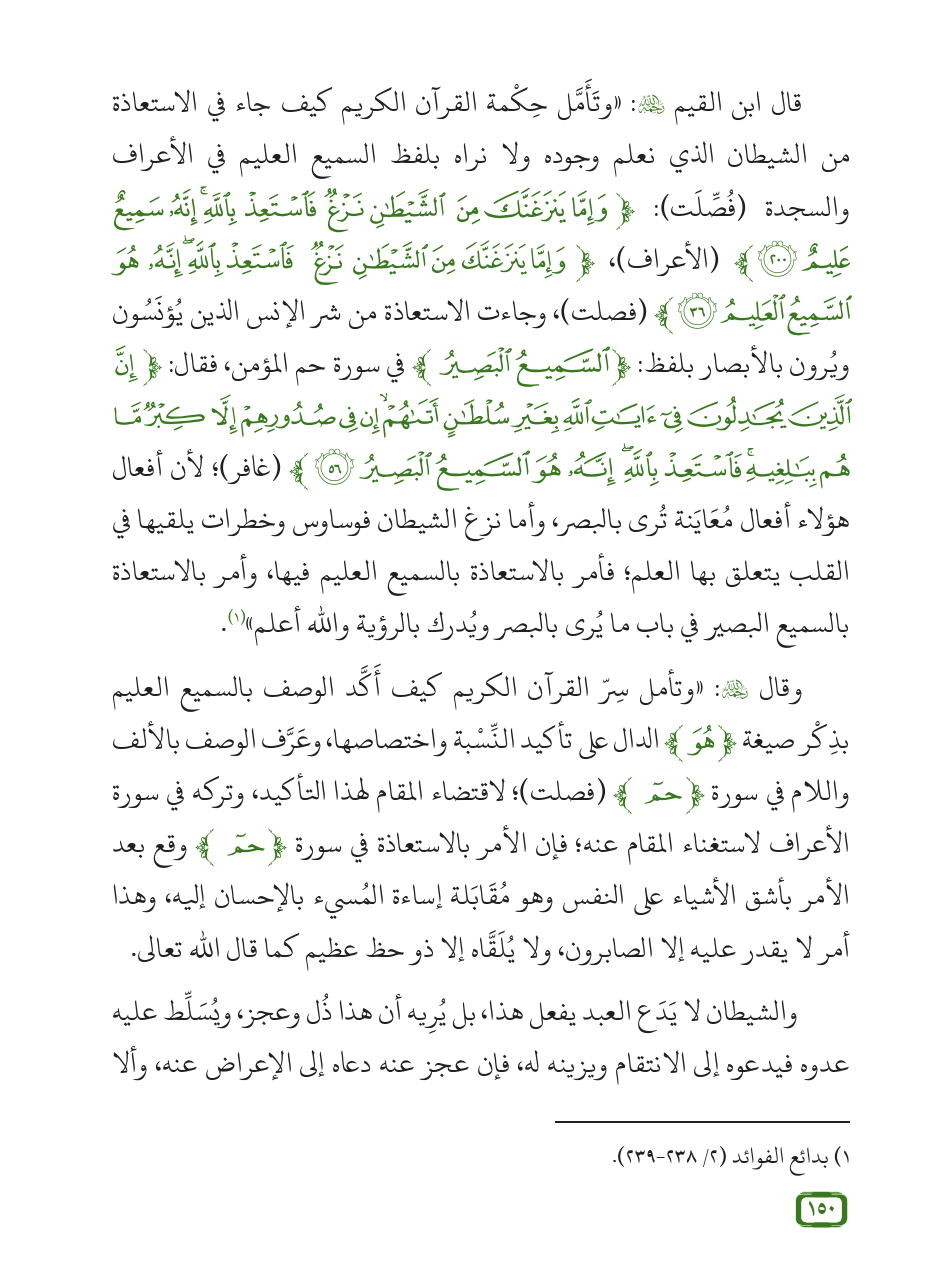 قال ابن القيم ﵀: «وتَأَمَّل حِكْمة القرآن الكريم كيف جاء في الاستعاذة
من الشيطان الذي نعلم وجوده ولا نراه بلفظ السميع العليم في الأعراف
والسجدة (فُصِّلَت): ﴿ وَإِمَّا يَنزَغَنَّكَ مِنَ ٱلشَّيْطَـٰنِ نَزْغٌ فَٱسْتَعِذْ بِٱللَّهِ ۚ إِنَّهُۥ سَمِيعٌ
عَلِيمٌ ٢٠٠ ﴾ (الأعراف)، ﴿ وَإِمَّا يَنزَغَنَّكَ مِنَ ٱلشَّيْطَـٰنِ نَزْغٌ فَٱسْتَعِذْ بِٱللَّهِ ۖ إِنَّهُۥ هُوَ
ٱلسَّمِيعُ ٱلْعَلِيمُ ٣٦ ﴾ (فصلت)، وجاءت الاستعاذة من شر الإنس الذين يُؤنَسُون
ويُرون بالأبصار بلفظ: ﴿ ٱلسَّمِيعُ ٱلْبَصِيرُ ﴾ في سورة حم المؤمن، فقال: ﴿ إِنَّ
ٱلَّذِينَ يُجَـٰدِلُونَ فِىٓ ءَايَـٰتِ ٱللَّهِ بِغَيْرِ سُلْطَـٰنٍ أَتَىٰهُمْ ۙ إِن فِى صُدُورِهِمْ إِلَّا كِبْرٌ مَّا
هُم بِبَـٰلِغِيهِ ۚ فَٱسْتَعِذْ بِٱللَّهِ ۖ إِنَّهُۥ هُوَ ٱلسَّمِيعُ ٱلْبَصِيرُ ٥٦ ﴾ (غافر)؛ لأن أفعال
هؤلاء أفعال مُعَايَنة تُرى بالبصر، وأما نزغ الشيطان فوساوس وخطرات يلقيها في
القلب يتعلق بها العلم؛ فأمر بالاستعاذة بالسميع العليم فيها، وأمر بالاستعاذة
بالسميع البصير في باب ما يُرى بالبصر ويُدرك بالرؤية والله أعلم»(١).
وقال ﵀: «وتأمل سِرّ القرآن الكريم كيف أَكَّد الوصف بالسميع العليم
بذِكْر صيغة ﴿ هُوَ ﴾ الدال على تأكيد النِّسْبة واختصاصها، وعَرَّف الوصف بالألف
واللام في سورة ﴿ حمٓ ﴾ (فصلت)؛ لاقتضاء المقام لهذا التأكيد، وتركه في سورة
الأعراف لاستغناء المقام عنه؛ فإن الأمر بالاستعاذة في سورة ﴿ حمٓ ﴾ وقع بعد
الأمر بأشق الأشياء على النفس وهو مُقَابَلة إساءة المُسيء بالإحسان إليه، وهذا
أمر لا يقدر عليه إلا الصابرون، ولا يُلَقَّاه إلا ذو حظ عظيم كما قال الله تعالى.
والشيطان لا يَدَع العبد يفعل هذا، بل يُرِيه أن هذا ذُل وعجز، ويُسَلِّط عليه
عدوه فيدعوه إلى الانتقام ويزينه له، فإن عجز عنه دعاه إلى الإعراض عنه، وألا
١) بدائع الفوائد (٢/ ٢٣٨-٢٣٩).
١٥٠